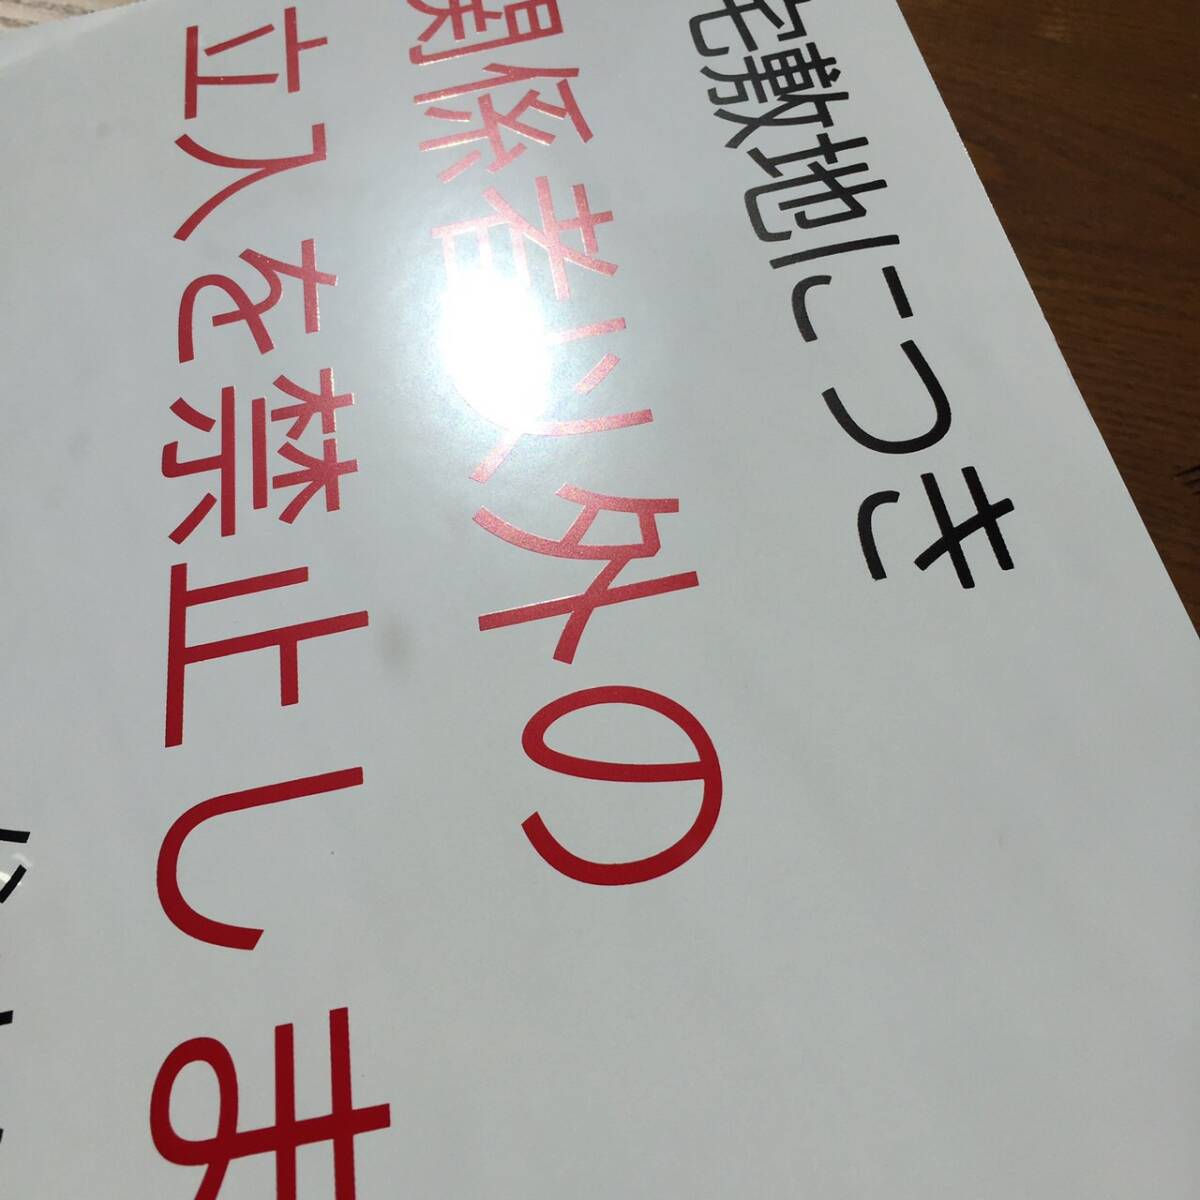 宅敷地につき
関係者以外の
立入を禁止しま